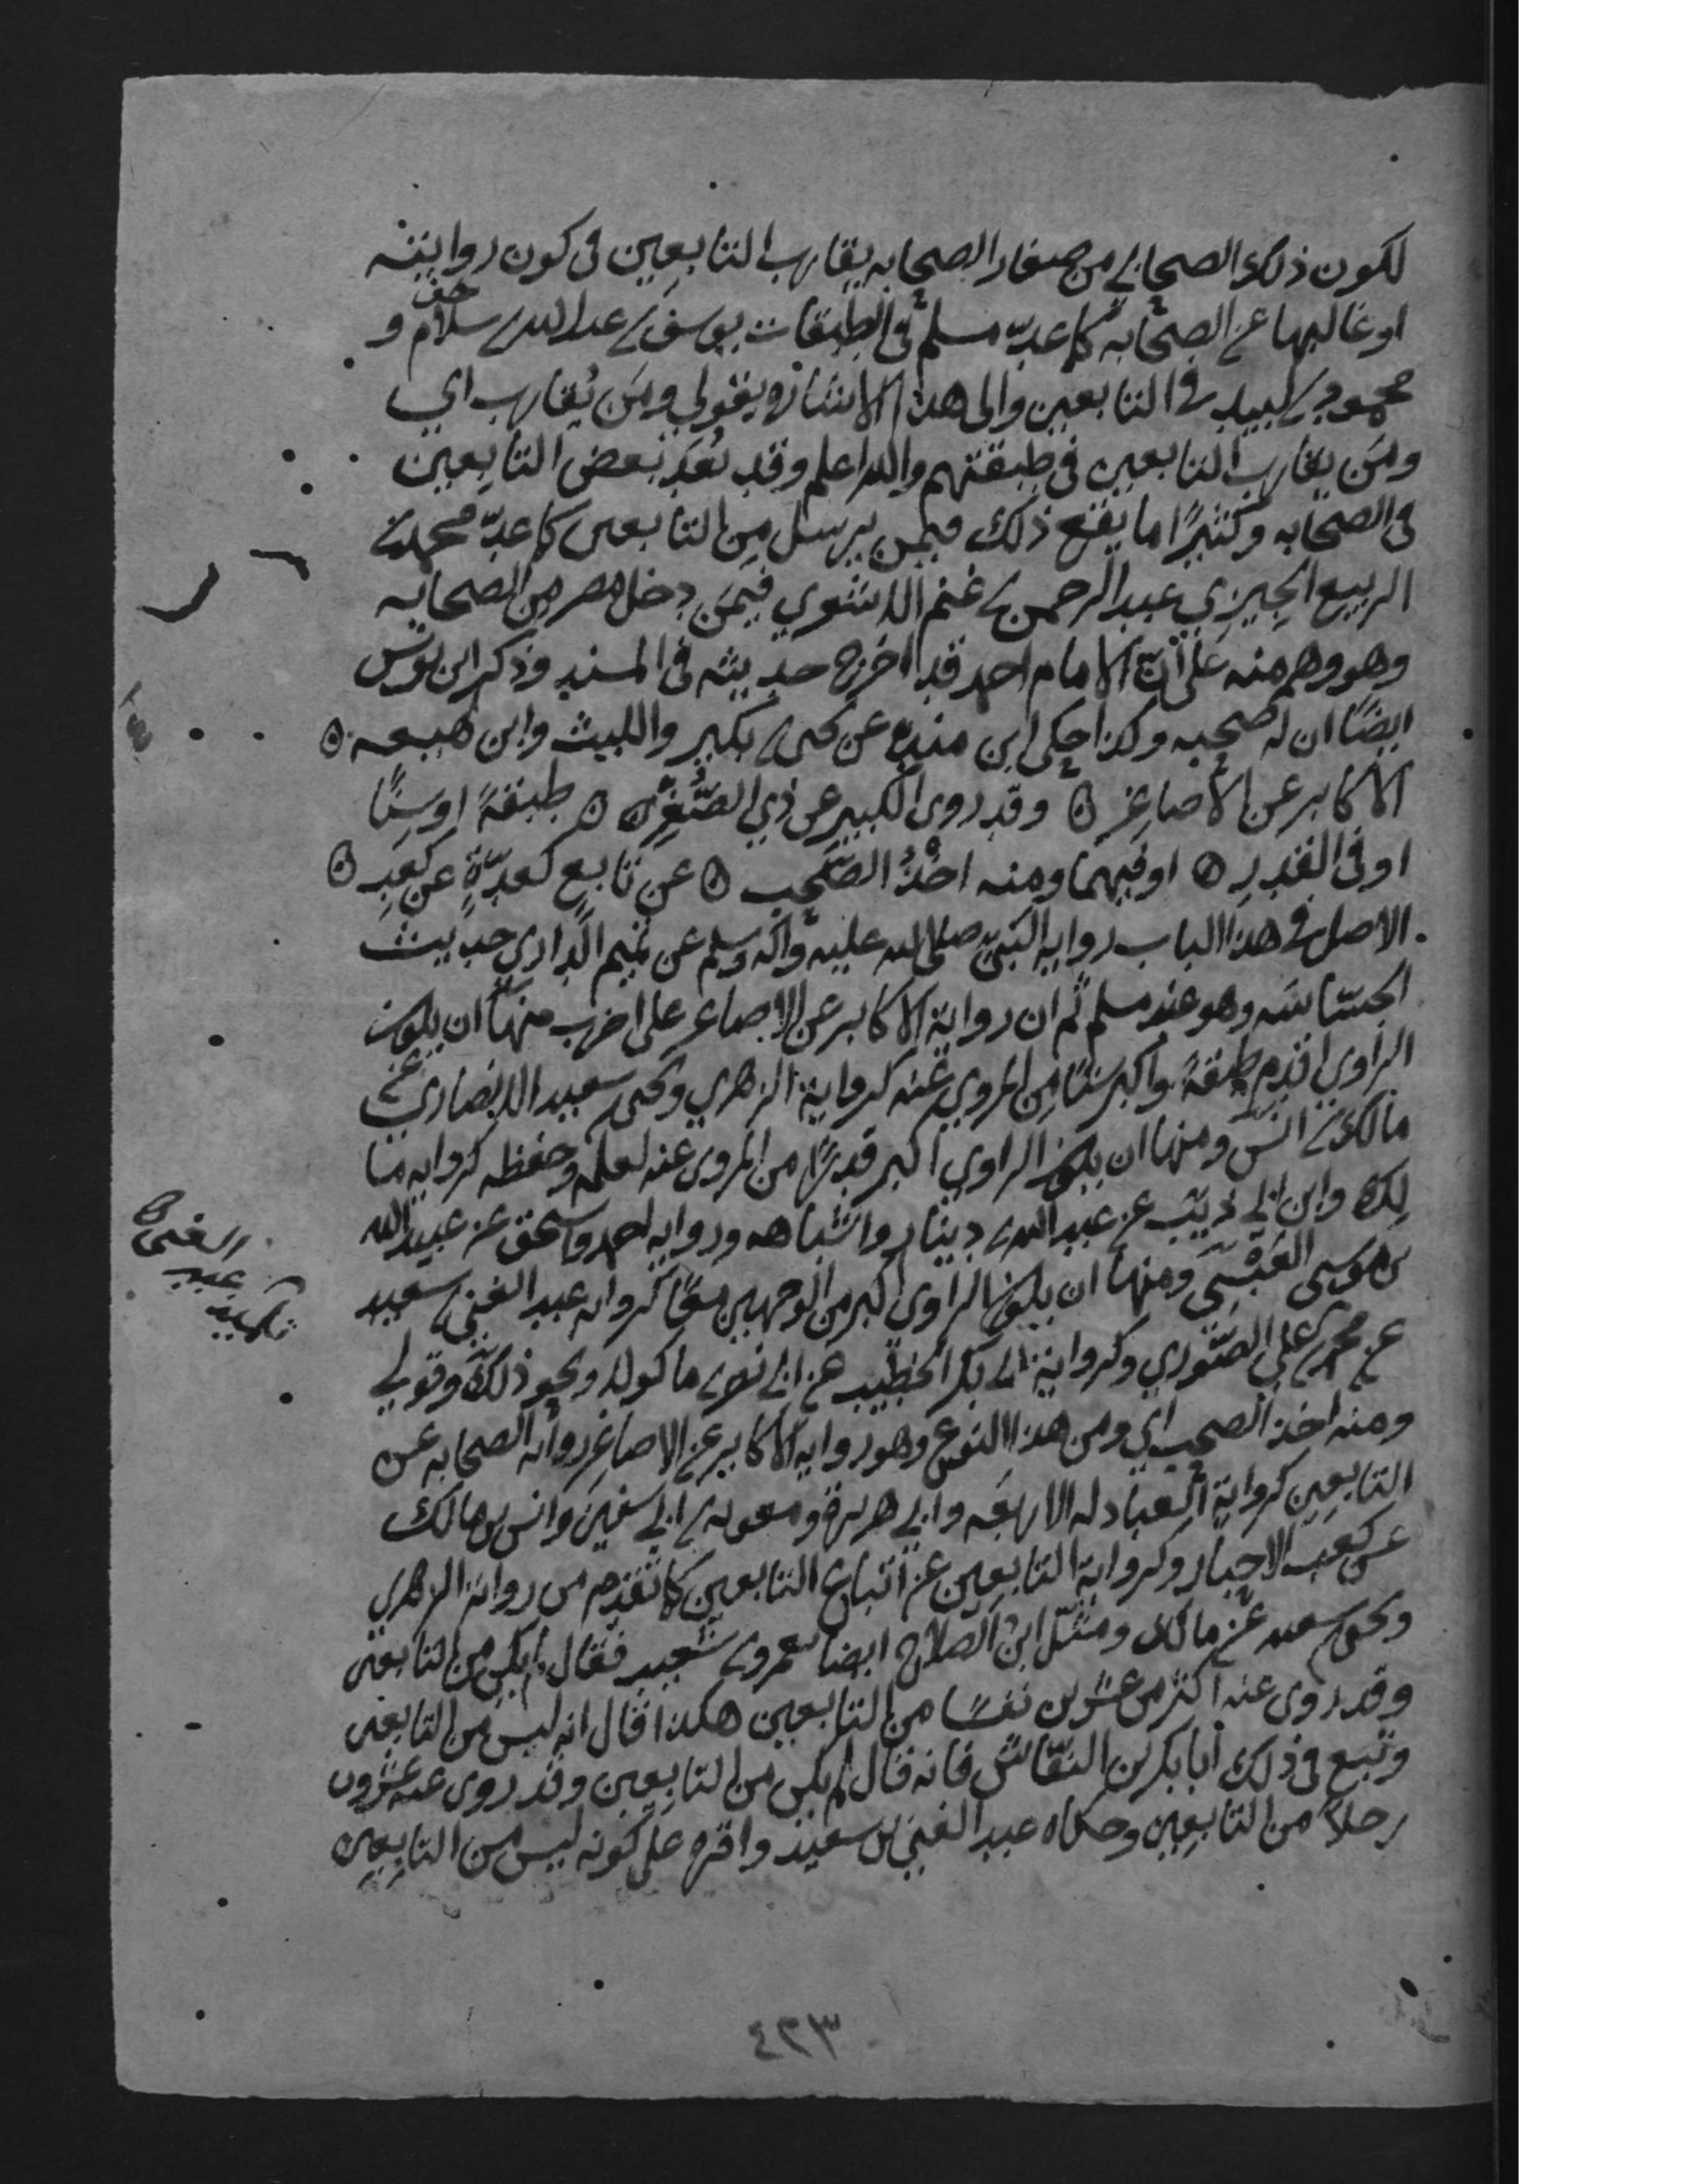 لكون ذلك الصحابي من صغار الصحابه يقارب التابعين فى كون روايته
او غالبها عن الصحابه كما عدّ مسلم فى الطبقات يوسف بن عبد الله بن سلام و
محمود بن لبيد فى التابعين والى هذا الاشاره بقولي ومَن يُقارب اي
ومَن يقارب التابعين فى طبقتهم والله اعلم وقد يُعَد بعض التابعين
فى الصحابه وكثيرًا ما يقع ذلك فيمن يرسل مِن التابعين كما عدّ محمد بن
الربيع الجِيزي عبد الرحمن بن غنم الاشعري فيمَن دخل مصر من الصحابه
وهو وهم منه على أنّ الامام احمد قد اخرج حديثه فى المسند وذكر ابن يونس
ايضًا ان له صحبه وكذا حكى ابن منده عن يحيى بن بكير والليث وابن لهيعه
الاكابر عن الاصاغر وقد روى الكبير عن ذي الصُّغرِ طبقةً او سِنًّا
او فى القدرِ او فيهما ومنه اخْذُ الصَّحب عن تابعٍ كعِدّةٍ عن كعبِ
الاصل فى هذا الباب رواية النبيّ صلى الله عليه وآله وسلم عن تميم الداري حديث
الجسّاسه وهو عند مسلم ثم ان رواية الاكابر عن الاصاغر على اضرب منها ان يكون
الراوي اقدم طبقةً واكبر سنًّا من المروي عنه كرواية الزهري ويحيى بن سعيد الانصاري عن
مالك بن انس ومنها ان يكون الراوي اكبر قدرًا من المروي عنه لعلمه وحفظه كرواية ما
لك وابن ابي ذيب عن عبد الله بن دينار واشباهه ورواية احمد واسحق عن عبيد الله
بن موسى العَبْسِي ومنها ان يكون الراوي اكبر من الوجهين معًا كرواية عبد الغني بن سعيد
عن محمد بن علي الصّوري وكرواية ابي بكر الخطيب عن ابي نصر بن ماكولا ونحو ذلك وقولي
ومنه اخذ الصحب اي ومن هذا النوع وهو رواية الاكابر عن الاصاغر رواية الصحابه عن
التابعين كرواية العبادله الاربعَه وابي هريرة ومعويه بن ابي سفين وانس بن مالك
عن كعب الاحبار وكرواية التابعين عن اتباع التابعين كما تقدم من رواية الزهري
ويحيى بن سعيد عن مالك ومثّل ابن الصلاح ايضا بعمرو بن شعيب فقال لم يكن من التابعين
وقد روى عنه اكثر من عشرين نفسًا من التابعين هكذا قال انه ليس من التابعين
وتبع فى ذلك ابا بكر بن النقّاش فانه قال لم يكن من التابعين وقد روى عنه عشرون
رجلاً من التابعين وحكاه عبد الغني بن سعيد واقره على كونه ليس من التابعين
الغنى
عبد
٤٢٣